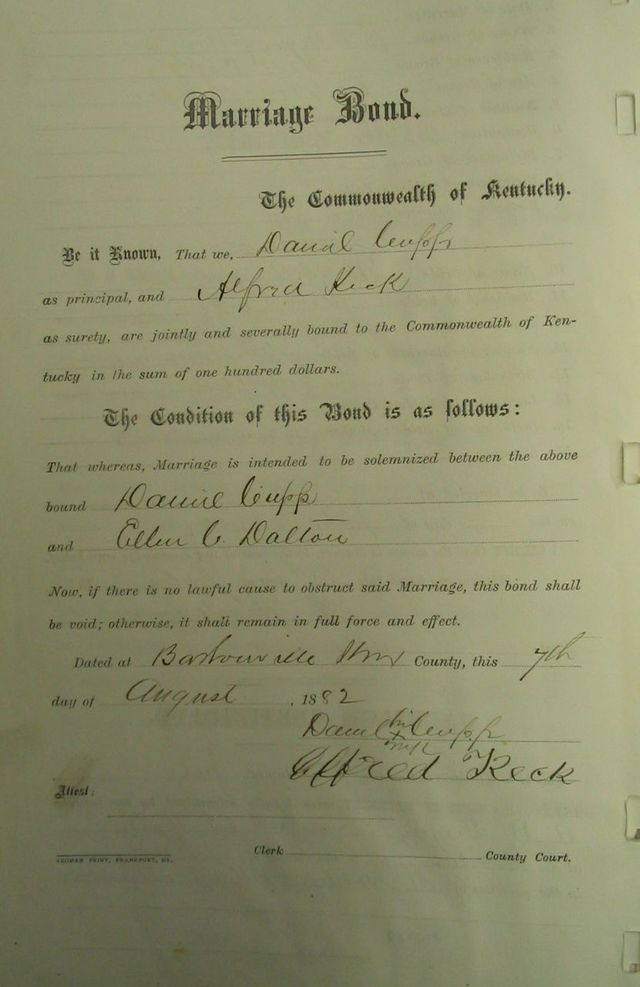 Marriage Bond.
The Commonwealth of Kentucky.
Be it Known, That we, Daniel Cupp
as principal, and Alfred Keck
as surety, are jointly and severally bound to the Commonwealth of Ken-
tucky in the sum of one hundred dollars.
The Condition of this Bond is as follows:
That whereas, Marriage is intended to be solemnized between the above
bound Daniel Cupp
and Ellen C Dalton
Now, if there is no lawful cause to obstruct said Marriage, this bond shall
be void; otherwise, it shall remain in full force and effect.
Dated at Barbourville Knox County, this 7th
day of August , 1882
his
Daniel x Cupp
mk
Alfred Keck
Attest:
Clerk County Court.
YEOMAN PRINT, FRANKFORT, KY.